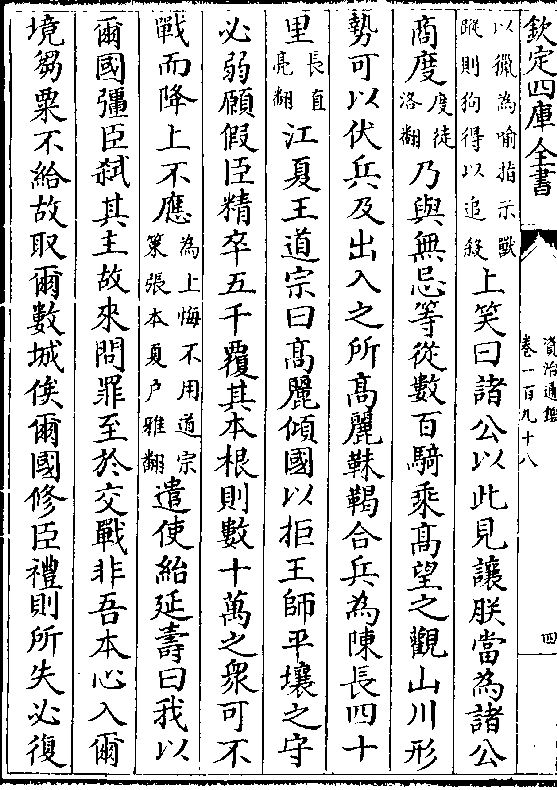 欽定四庫全書
資治通鑑
卷一百九十八
四
以獵為喻指示獸
蹤則狗得以追殺
上笑曰諸公以此見讓朕當為諸公
商度
度徒
洛翻
乃與無忌等從數百騎乘高望之觀山川形
勢可以伏兵及出入之所高麗靺鞨合兵為陳長四十
里
長直
亮翻
江夏王道宗曰高麗傾國以拒王師平壤之守
必弱願假臣精卒五千覆其本根則數十萬之衆可不
戰而降上不應
為上悔不用道宗
策張本夏户雅翻
遣使紿延壽曰我以
爾國彊臣弑其主故來問罪至於交戰非吾本心入爾
境芻粟不給故取爾數城俟爾國修臣禮則所失必復